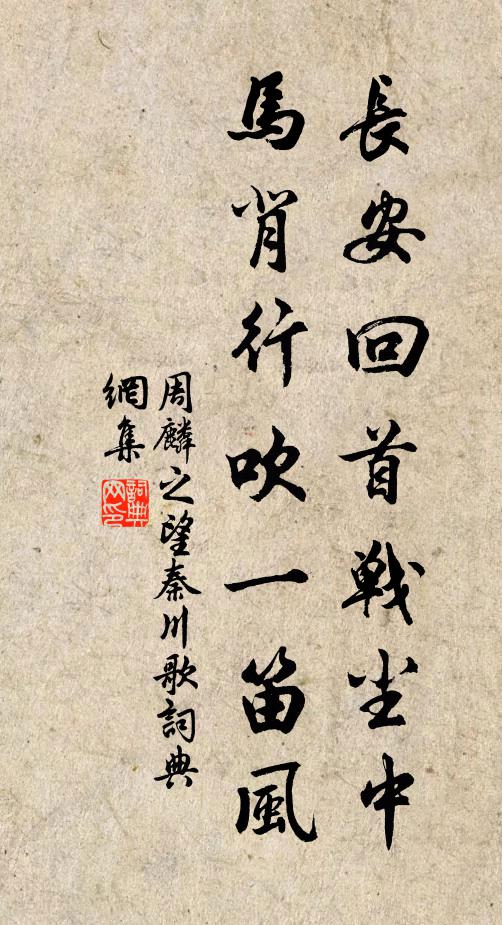 長安回首戦尘中
馬背行吹一笛風
周麟之望秦川歌詞典
網集
詞典
网印